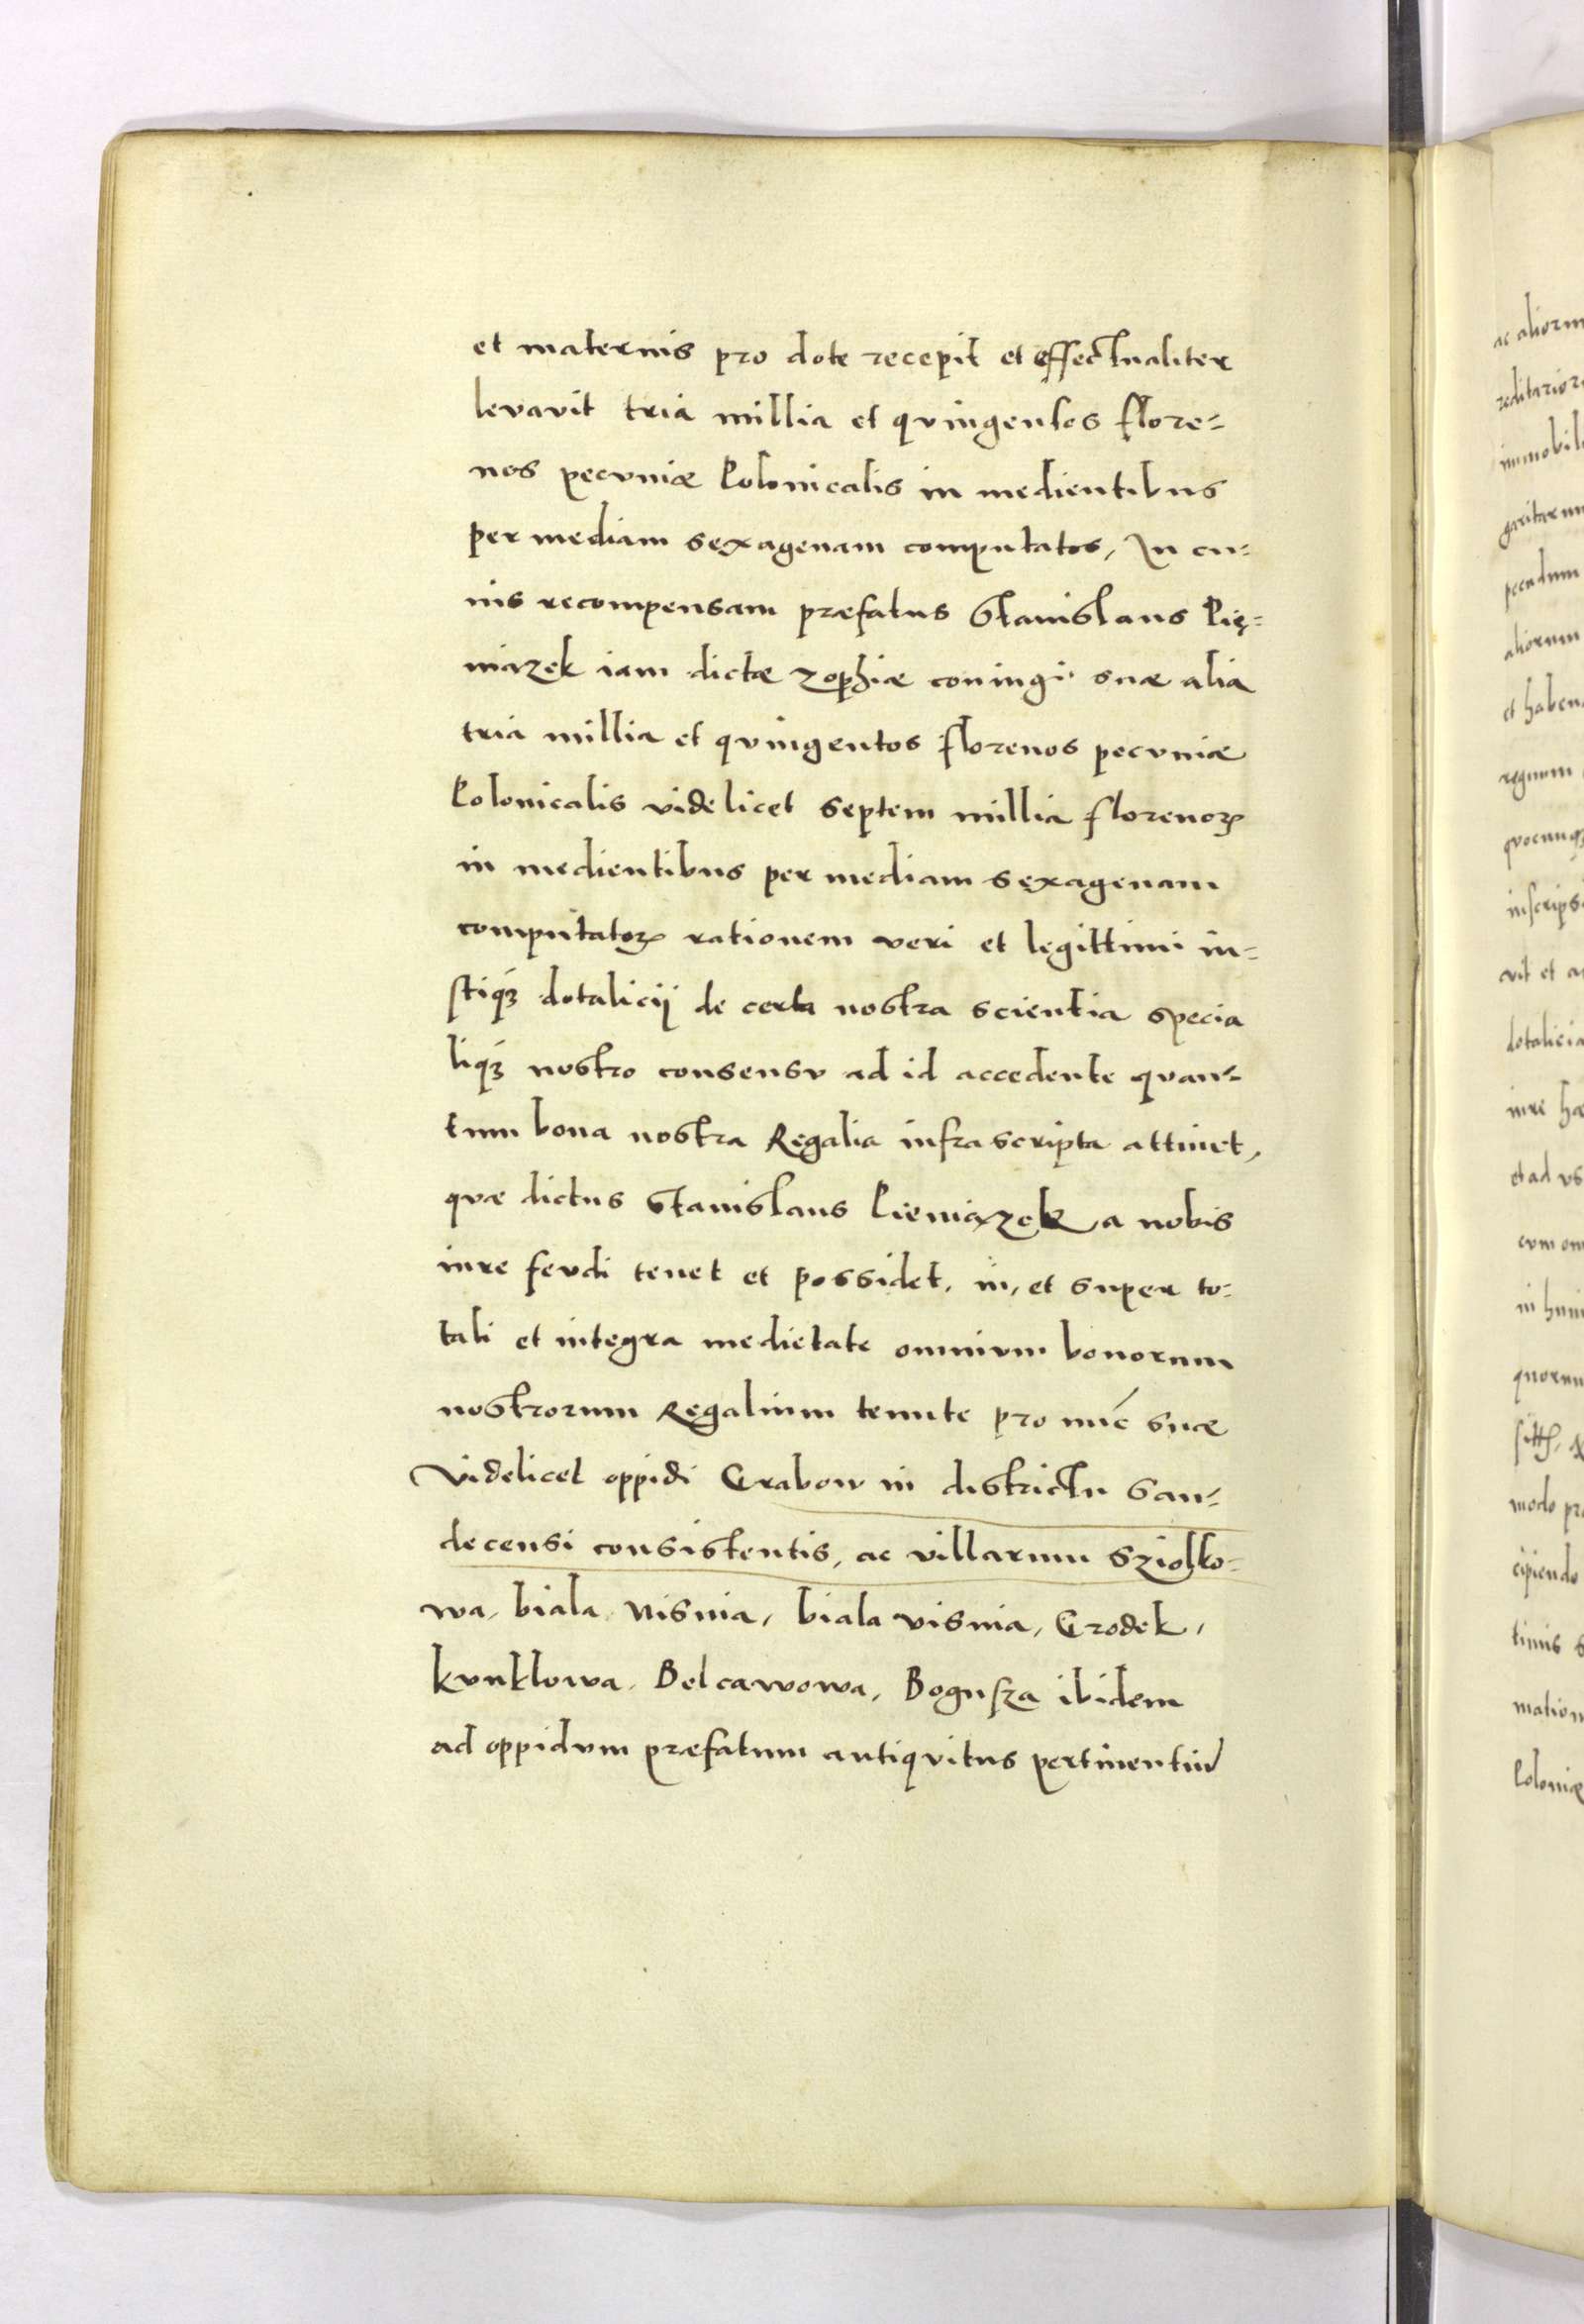 et maternis pro dote recepit et effectualiter
levavit tria millia et qvingentos flore=
nos pecvniæ Polonicalis in medientibus
per mediam sexagenam computatos, In cu=
ius recompensam præfatus Stanislaus Pię=
niazek iam dictæ zophiæ coniugi suæ alia
tria millia et qvingentos florenos pecvniæ
Polonicalis videlicet septem millia florenoꝝ
in medientibus per mediam sexagenam
computatoꝝ rationem veri et legittimi iu=
stiqꝫ dotalicij de certa nostra scientia specia
liqꝫ nostro consensv ad id accedente qvan=
tum bona nostra Regalia infrascripta attinet,
qvæ dictus Stanislaus Pieniązek a nobis
iure fevdi tenet et possidet, in, et super to=
tali et integra medietate omnivm bonorum
nostrorum Regalium tenute pro nūc suæ
Videlicet oppidi Grabow in districtu San=
decensi consistentis, ac villarum Sziolko=
wa, biala nisnia, biala visnia, Grodek,
kvnklowa, Belcawowa, Bogusza ibidem
ad oppidvm præfatum antiqvitus pertinentiū
ac aliorum
reditarior
immobil
garitarum
pecudum
aliorum
et haben
regnum
qvocunqꝫ
inscrips
vit et a
dotalicia
iure hæ
et ad vs
cvm om
in huiu
quorum
modo pr
cipiendo
timis s
mation
Poloniæ